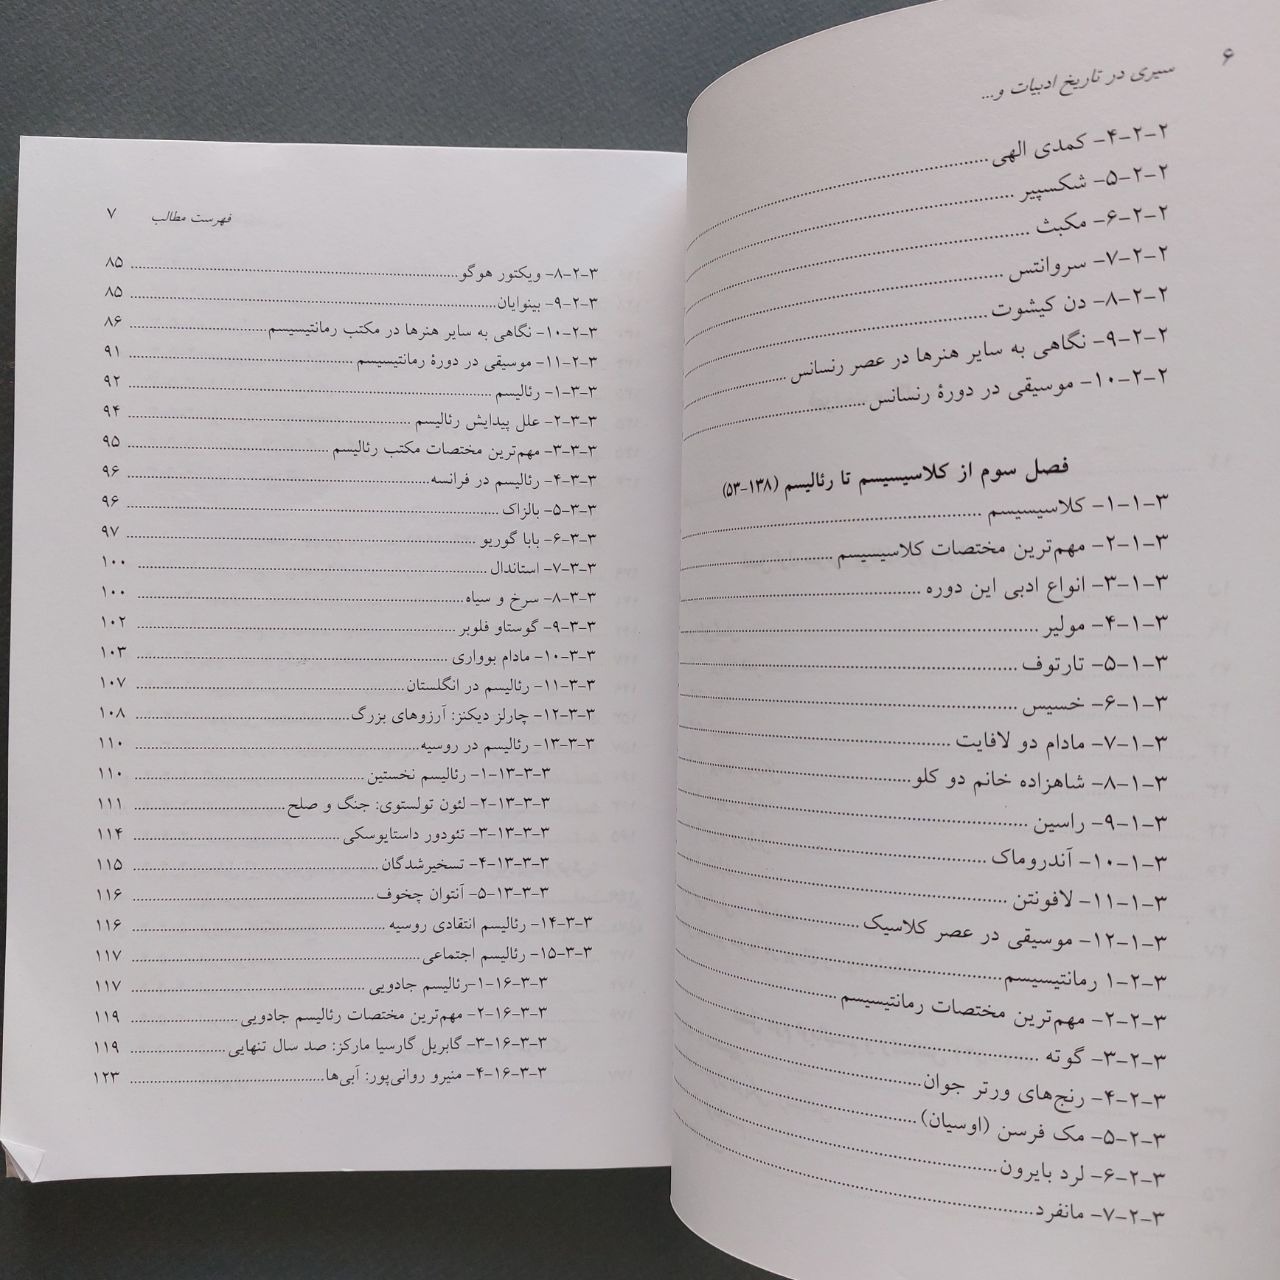 ۶
سیری در تاریخ ادبیات و...
۴-۲-۲- کمدی الهی
۵-۲-۲- شکسپیر
۶-۲-۲- مکبث
۷-۲-۲- سروانتس
۸-۲-۲- دن کیشوت
۹-۲-۲- نگاهی به سایر هنرها در عصر رنسانس
۱۰-۲-۲- موسیقی در دورهٔ رنسانس
فصل سوم از کلاسیسیسم تا رئالیسم (۱۳۸-۵۳)
۱-۱-۳- کلاسیسیسم
۲-۱-۳- مهم‌ترین مختصات کلاسیسیسم
۳-۱-۳- انواع ادبی این دوره
۴-۱-۳- مولیر
۵-۱-۳- تارتوف
۶-۱-۳- خسیس
۷-۱-۳- مادام دو لافایت
۸-۱-۳- شاهزاده خانم دو کلو
۹-۱-۳- راسین
۱۰-۱-۳- آندروماک
۱۱-۱-۳- لافونتن
۱۲-۱-۳- موسیقی در عصر کلاسیک
۱-۲-۳ رمانتیسیسم
۲-۲-۳- مهم‌ترین مختصات رمانتیسیسم
۳-۲-۳- گوته
۴-۲-۳- رنج‌های ورتر جوان
۵-۲-۳- مک فرسن (اوسیان)
۶-۲-۳- لرد بایرون
۷-۲-۳- مانفرد
فهرست مطالب ۷
۸-۲-۳- ویکتور هوگو ۸۵
۹-۲-۳- بینوایان ۸۵
۱۰-۲-۳- نگاهی به سایر هنرها در مکتب رمانتیسیسم ۸۶
۱۱-۲-۳- موسیقی در دورهٔ رمانتیسیسم ۹۱
۱-۳-۳- رئالیسم ۹۲
۲-۳-۳- علل پیدایش رئالیسم ۹۴
۳-۳-۳- مهم‌ترین مختصات مکتب رئالیسم ۹۵
۴-۳-۳- رئالیسم در فرانسه ۹۶
۵-۳-۳- بالزاک ۹۶
۶-۳-۳- بابا گوریو ۹۷
۷-۳-۳- استاندال ۱۰۰
۸-۳-۳- سرخ و سیاه ۱۰۰
۹-۳-۳- گوستاو فلوبر ۱۰۲
۱۰-۳-۳- مادام بوواری ۱۰۳
۱۱-۳-۳- رئالیسم در انگلستان ۱۰۷
۱۲-۳-۳- چارلز دیکنز: آرزوهای بزرگ ۱۰۸
۱۳-۳-۳- رئالیسم در روسیه ۱۱۰
۱-۱۳-۳-۳- رئالیسم نخستین ۱۱۰
۲-۱۳-۳-۳- لئون تولستوی: جنگ و صلح ۱۱۱
۳-۱۳-۳-۳- تئودور داستایوسکی ۱۱۴
۴-۱۳-۳-۳- تسخیرشدگان ۱۱۵
۵-۱۳-۳-۳- آنتوان چخوف ۱۱۶
۱۴-۳-۳- رئالیسم انتقادی روسیه ۱۱۶
۱۵-۳-۳- رئالیسم اجتماعی ۱۱۷
۱-۱۶-۳-۳-رئالیسم جادویی ۱۱۷
۲-۱۶-۳-۳- مهم‌ترین مختصات رئالیسم جادویی ۱۱۹
۳-۱۶-۳-۳- گابریل گارسیا مارکز: صد سال تنهایی ۱۱۹
۴-۱۶-۳-۳- منیرو روانی‌پور: آبی‌ها ۱۲۳